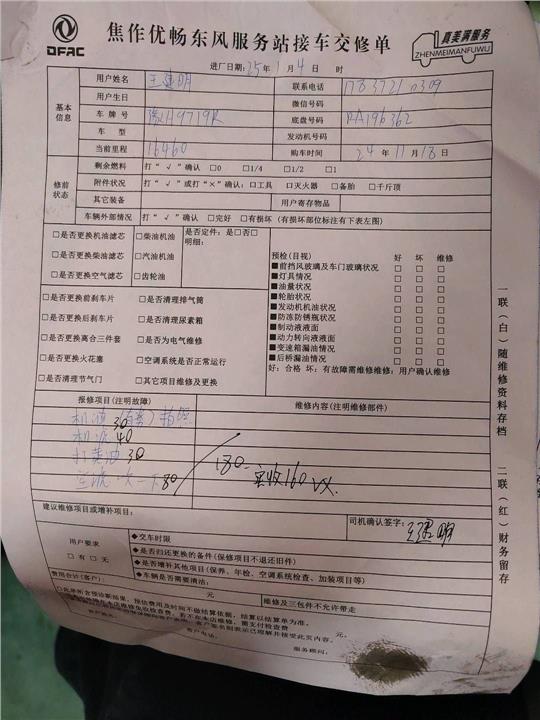 DFAC
焦作优畅东风服务站接车交修单
真美满服务
ZHENMEIMANFUWU
进厂日期：25年1月4日 时
基本信息
用户姓名 王建明 联系电话
用户生日 微信号码
车牌号 豫H9719R 底盘号码 RA196362
车型 发动机号码
当前里程 16460 购车时间 24年11月18日
修前状态
剩余燃料 打“√”确认 □0 □1/4 □1/2 □1
附件状况 打“√”或打“×”确认：□工具 □灭火器 □备胎 □千斤顶
其它装备 用户寄存物品
车辆外部情况 打“√”确认 □完好 □有损坏（有损坏部位标注有下表左图）
□是否更换机油滤芯 □柴油机油 是否定件：是□否□
明细：
□是否更换柴油滤芯 □汽油机油
□是否更换空气滤芯 □齿轮油
□是否更换前刹车片 □是否清理排气筒
□是否更换后刹车片 □是否清理尿素箱
□是否更换离合三件套 □是否为电气维修
□是否更换火花塞 □空调系统是否正常运行
□是否清理节气门 □其它项目维修及更换
预检（目视） 好 坏 维修
■前挡风玻璃及车门玻璃状况 □ □ □
■灯具情况 □ □ □
■油量状况 □ □ □
■轮胎状况 □ □ □
■发动机机油状况 □ □ □
■防冻防锈瓶状况 □ □ □
■制动液液面 □ □ □
■动力转向液液面 □ □ □
■变速箱漏油情况 □ □ □
■后桥漏油情况 □ □ □
好：合格 坏：有故障需维修维修：用户确认维修
报修项目（注明故障） 维修内容（注明维修部件）
机滤30
机油40
打黄油30
80
180 实收160 VX.
建议维修项目或增补项目： 司机确认签字：王建明
用户要求
□有 □无
◆交车时限
◆是否归还更换的备件（保修项目不退还旧件）
◆是否增补其他项目（保养、年检、空调系统检查、加装项目等）
◆车辆是否需要清洁：
费用合计（客户）： 元 维修及三包件不允许带走
元。
客户电话：
服务顾问：
一联（白）随维修资料存档
二联（红）财务留存